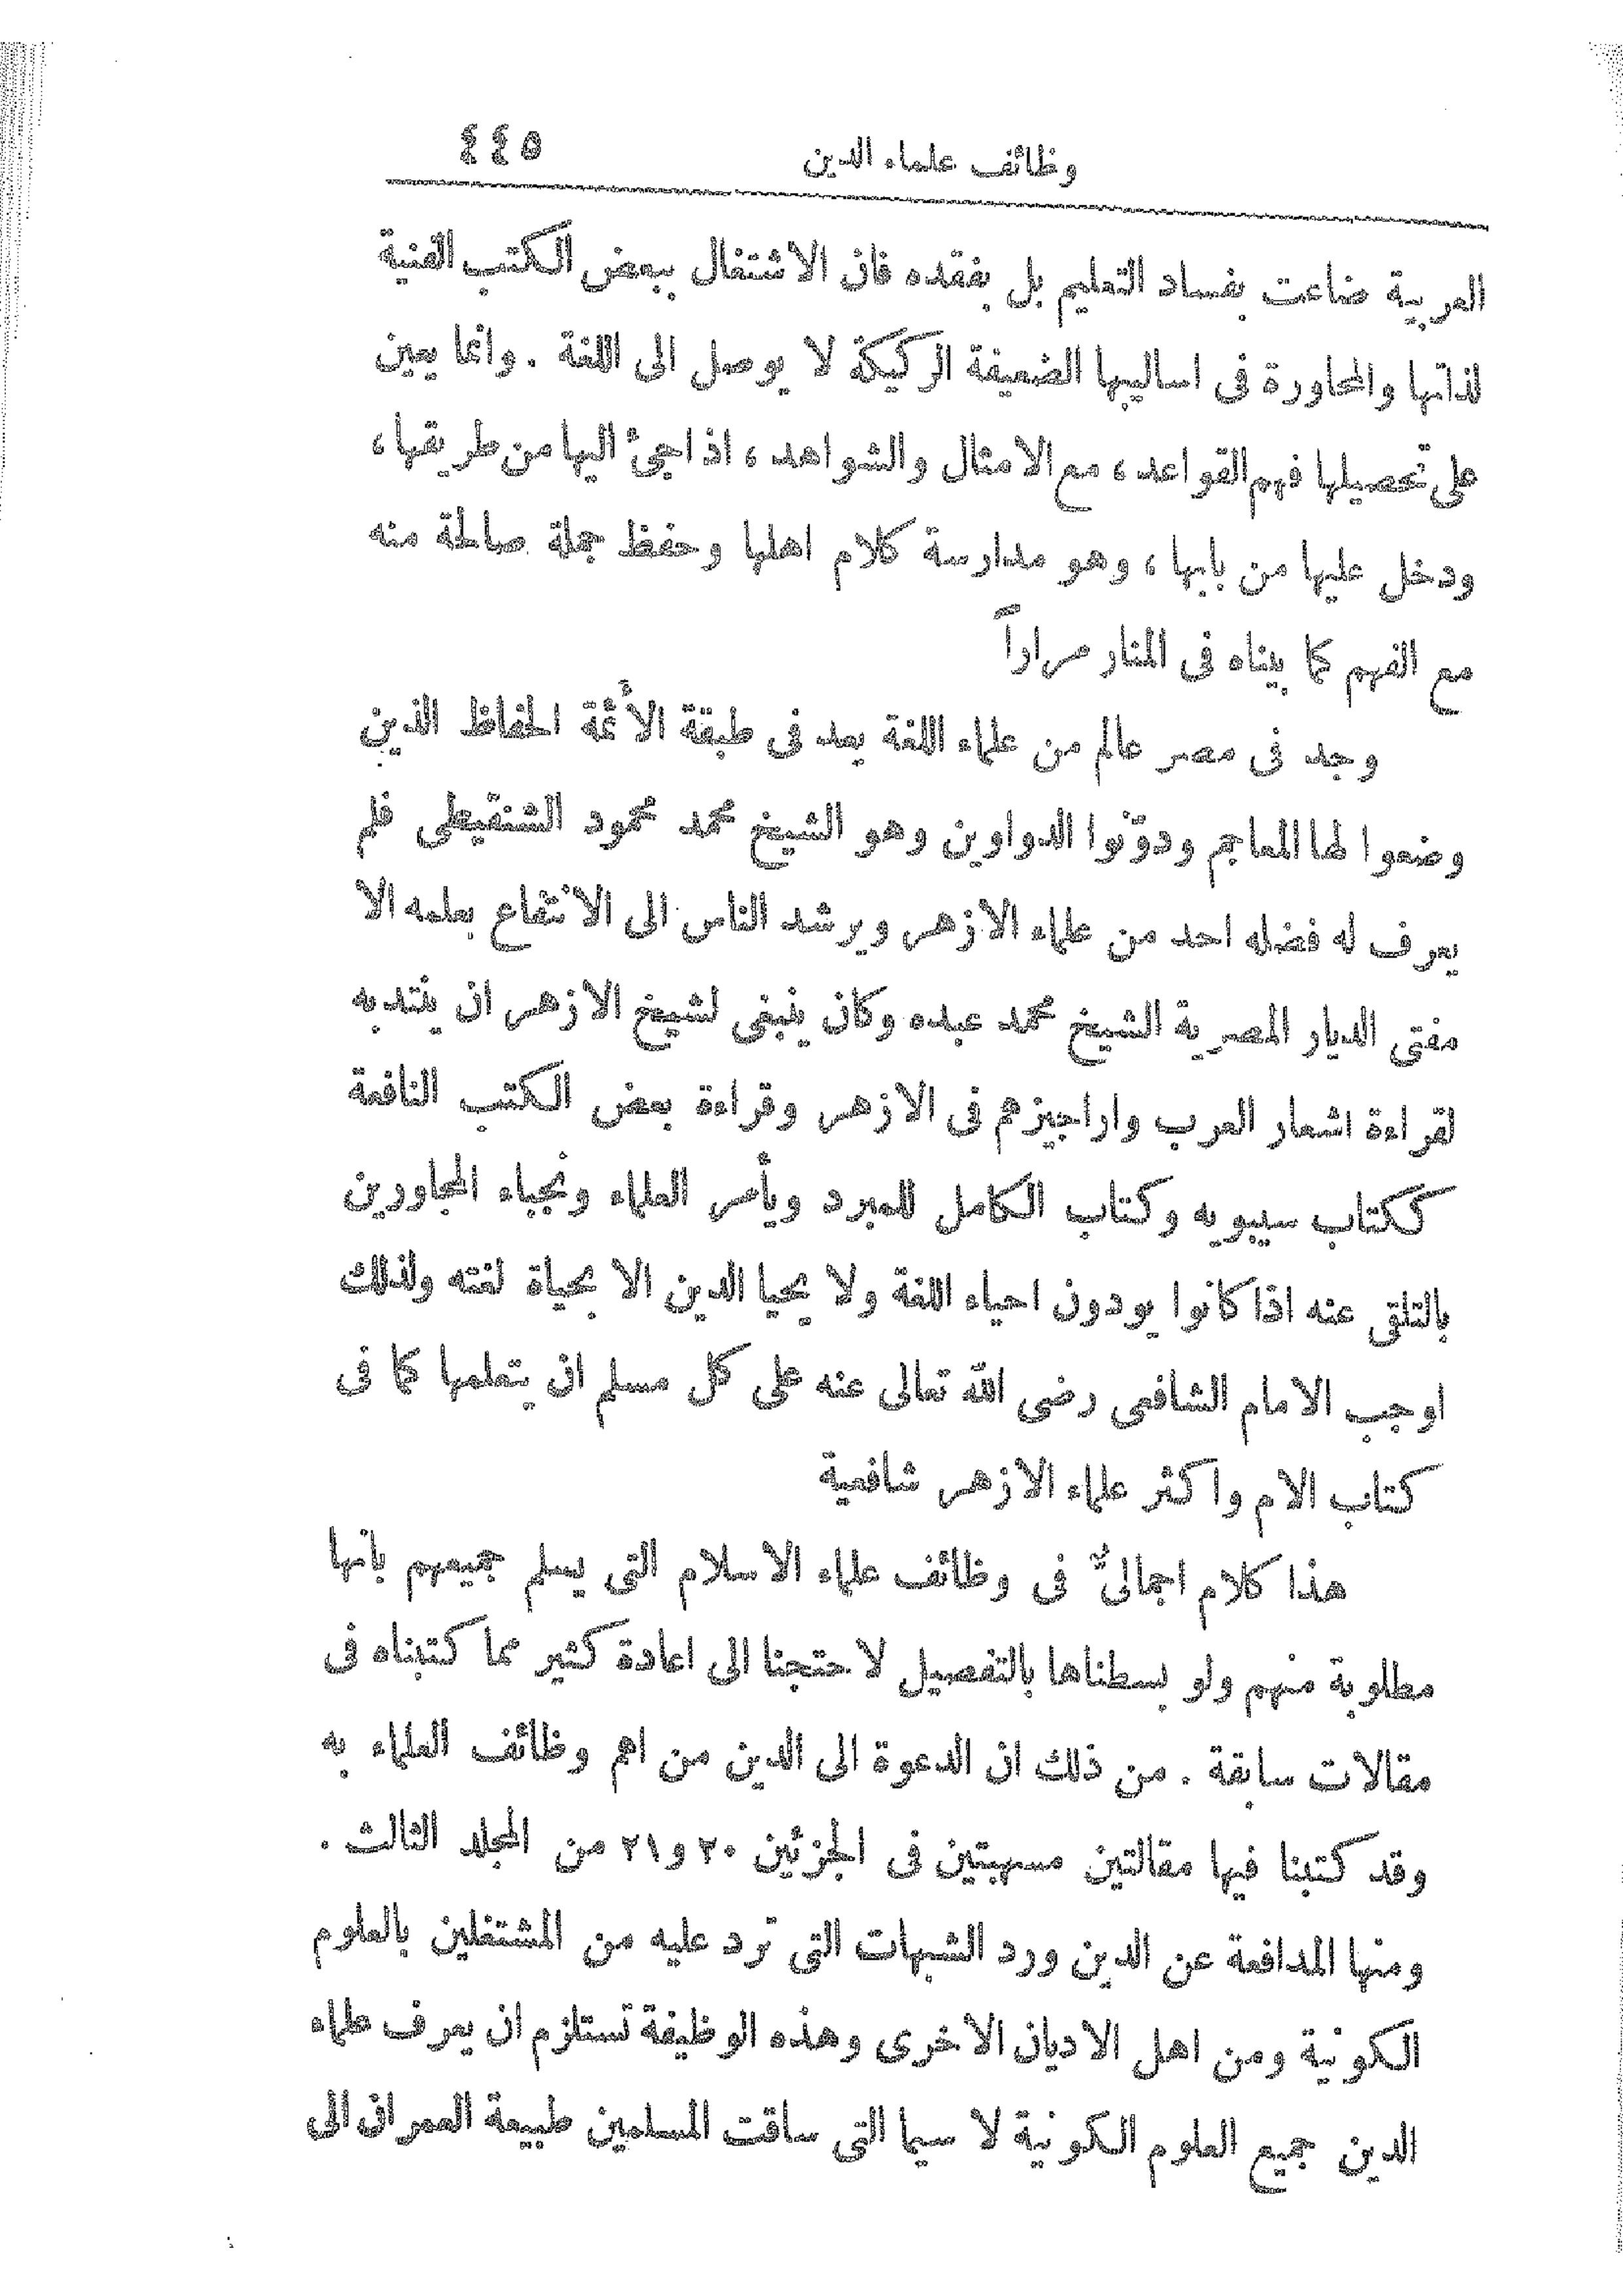 وظائف علماء الدين ٤٤٥
العربية ضاعت بفساد التعليم بل بفقده فان الاشتغال ببعض الكتب الفنية
لذاتها والمحاورة فى اساليبها الضعيفة الركيكة لا يوصل الى اللغة . وانما يعين
على تحصيلها فهم القواعد ، مع الامثال والشواهد ، اذا جئ اليها من طريقها ،
ودخل عليها من بابها ، وهو مدارسة كلام اهلها وحفظ جملة صالحة منه
مع الفهم كما بيناه فى المنار مراراً
وجد فى مصر عالم من علماء اللغة يعد فى طبقة الأئمة الحفاظ الذين
وضعوا لها المعاجم ودوّنوا الدواوين وهو الشيخ محمد محمود الشنقيطى فلم
يعرف له فضله احد من علماء الازهر ويرشد الناس الى الانتفاع بعلمه الا
مفتى الديار المصرية الشيخ محمد عبده وكان ينبغى لشيخ الازهر ان ينتدبه
لقراءة اشعار العرب واراجيزهم فى الازهر وقراءة بعض الكتب النافعة
ككتاب سيبويه وكتاب الكامل للمبرد ويأمر العلماء ونجباء المجاورين
بالتلقى عنه اذا كانوا يودون احياء اللغة ولا يحيا الدين الا بحياة لغته ولذلك
اوجب الامام الشافعى رضى الله تعالى عنه على كل مسلم ان يتعلمها كما فى
كتاب الام واكثر علماء الازهر شافعية
هذا كلام اجمالىٌّ فى وظائف علماء الاسلام التى يسلم جميعهم بانها
مطلوبة منهم ولو بسطناها بالتفصيل لاحتجنا الى اعادة كثير مما كتبناه فى
مقالات سابقة . من ذلك ان الدعوة الى الدين من اهم وظائف العلماء به
وقد كتبنا فيها مقالتين مسهبتين فى الجزئين ٢٠ و٢١ من المجلد الثالث .
ومنها المدافعة عن الدين ورد الشبهات التى ترد عليه من المشتغلين بالعلوم
الكونية ومن اهل الاديان الاخرى وهذه الوظيفة تستلزم ان يعرف علماء
الدين جميع العلوم الكونية لا سيما التى ساقت المسلمين طبيعة العمران الى